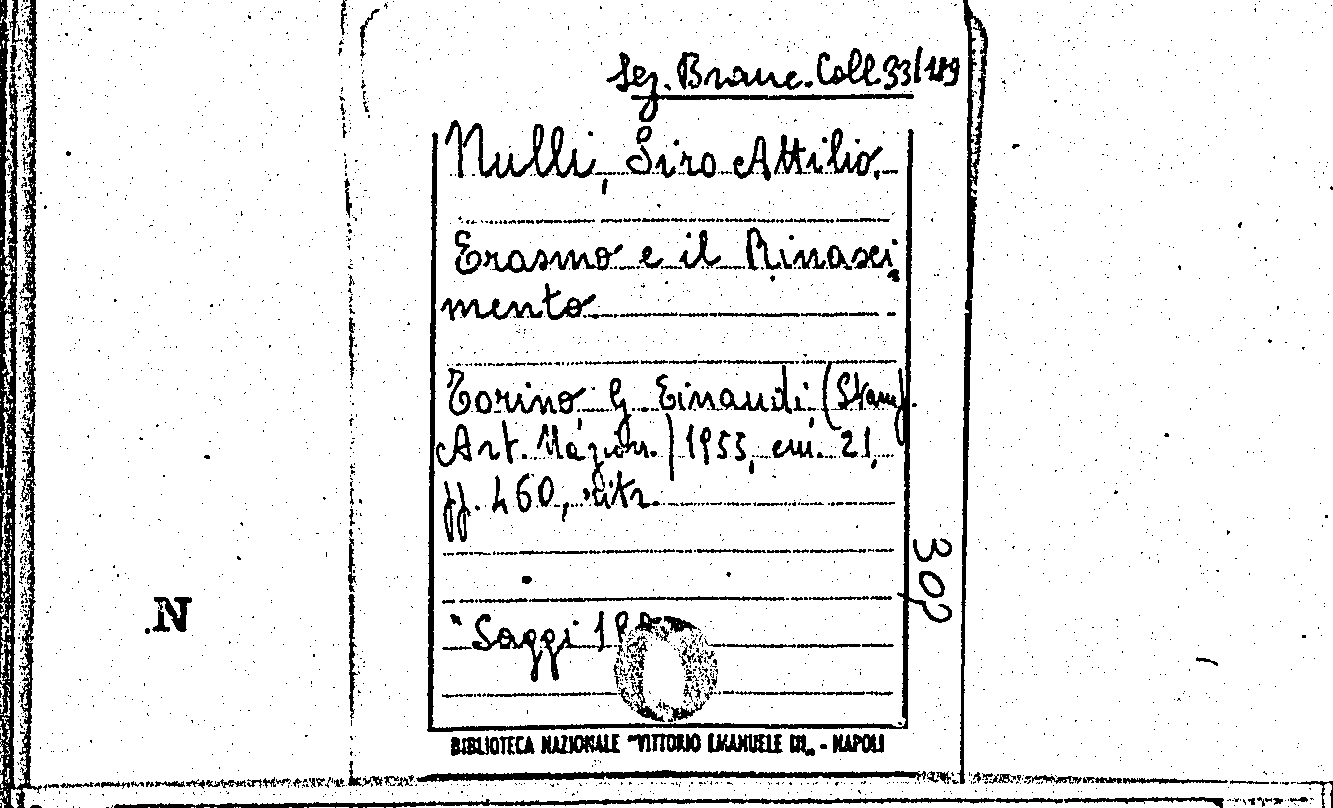 Sez. Branc. Coll. 33/189
Nulli, Siro Attilio.
Erasmo e il Rinasci-
mento.
Torino, G. Einaudi, (Stamp.
Art. Nazion.) 1955, cm. 21,
pp. 460, ritr.
"Saggi
302
N
BIBLIOTECA NAZIONALE "VITTORIO EMANUELE III„ - NAPOLI